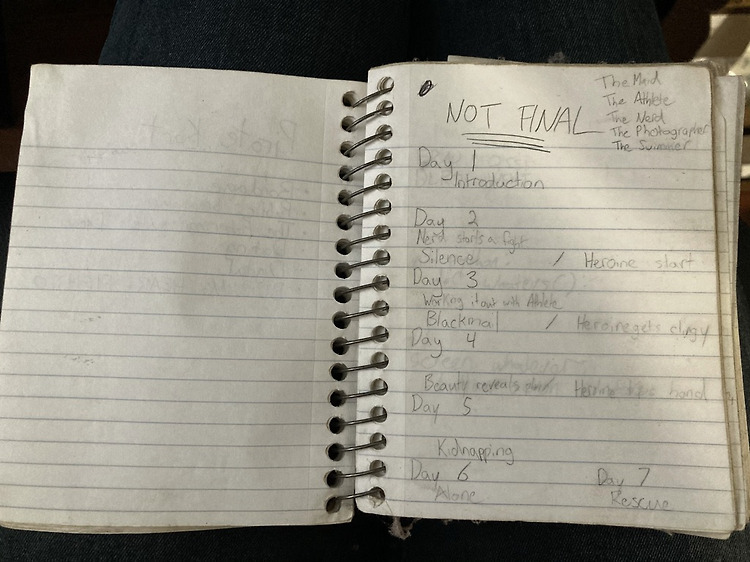 The Maid
The Athlete
NOT FINAL
The Nerd
The Photographer
The Swimmer
Day 1
Introduction
Day 2
Nerd starts a fight
Silence / Heroine start
Day 3
Working it out with Athlete
Blackmail / Heroine gets clingy
Day 4
Beauty reveals / Heroine tips hand
Day 5
Kidnapping
Day 6 Day 7
Alone Rescue